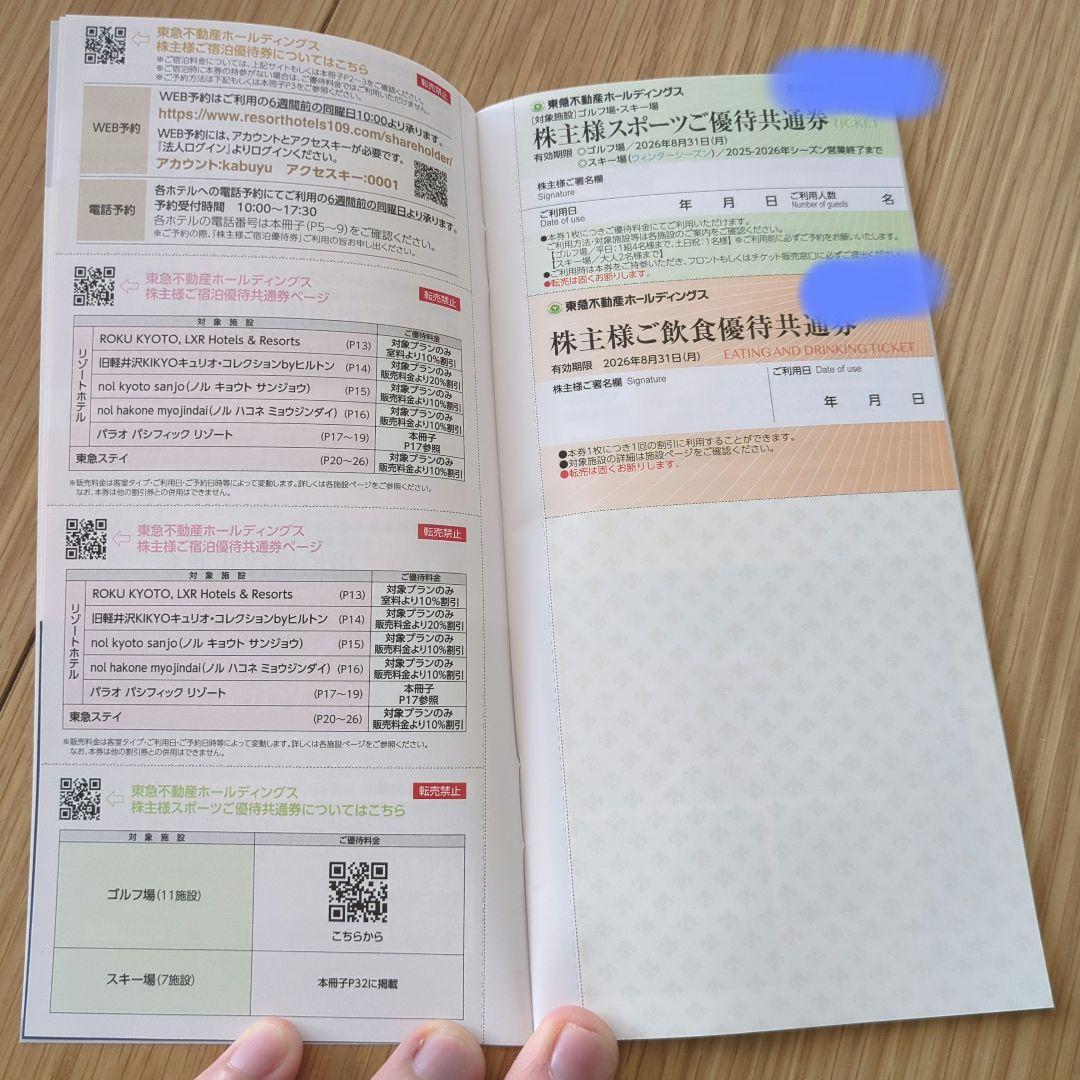 東急不動産ホールディングス
株主様ご宿泊優待券についてはこちら
※ご宿泊料金については、上記サイトもしくは本冊子P2～3をご確認ください。
※ご宿泊時に本券の持参がない場合は、ご優待料金ではご利用いただけません。
※ご予約方法は下記もしくは本冊子P3をご参照ください。
転売禁止
WEB予約
WEB予約はご利用の6週間前の同曜日10:00より承ります。
https://www.resorthotels109.com/shareholder/
WEB予約には、アカウントとアクセスキーが必要です。
「法人ログイン」よりログインください。
アカウント:kabuyu アクセスキー:0001
電話予約
各ホテルへの電話予約にてご利用の6週間前の同曜日より承ります。
予約受付時間 10:00～17:30
各ホテルの電話番号は本冊子(P5～9)をご確認ください。
※ご予約の際、「株主様ご宿泊優待券」ご利用の旨お申し出ください。
東急不動産ホールディングス
株主様ご宿泊優待共通券ページ
転売禁止
対象施設 ご優待料金
リゾートホテル
ROKU KYOTO, LXR Hotels & Resorts (P13) 対象プランのみ
室料より10%割引
旧軽井沢KIKYOキュリオ・コレクションbyヒルトン (P14) 対象プランのみ
販売料金より20%割引
nol kyoto sanjo(ノル キョウト サンジョウ) (P15) 対象プランのみ
販売料金より10%割引
nol hakone myojindai(ノル ハコネ ミョウジンダイ) (P16) 対象プランのみ
販売料金より10%割引
パラオ パシフィック リゾート (P17～19) 本冊子
P17参照
東急ステイ (P20～26) 対象プランのみ
販売料金より10%割引
※販売料金は客室タイプ・ご利用日・ご予約日時等によって変動します。詳しくは各施設ページをご参照ください。
なお、本券は他の割引券との併用はできません。
東急不動産ホールディングス
株主様ご宿泊優待共通券ページ
転売禁止
対象施設 ご優待料金
リゾートホテル
ROKU KYOTO, LXR Hotels & Resorts (P13) 対象プランのみ
室料より10%割引
旧軽井沢KIKYOキュリオ・コレクションbyヒルトン (P14) 対象プランのみ
販売料金より20%割引
nol kyoto sanjo(ノル キョウト サンジョウ) (P15) 対象プランのみ
販売料金より10%割引
nol hakone myojindai(ノル ハコネ ミョウジンダイ) (P16) 対象プランのみ
販売料金より10%割引
パラオ パシフィック リゾート (P17～19) 本冊子
P17参照
東急ステイ (P20～26) 対象プランのみ
販売料金より10%割引
※販売料金は客室タイプ・ご利用日・ご予約日時等によって変動します。詳しくは各施設ページをご参照ください。
なお、本券は他の割引券との併用はできません。
東急不動産ホールディングス
株主様スポーツご優待共通券についてはこちら
転売禁止
対象施設 ご優待料金
ゴルフ場(11施設)
こちらから
スキー場(7施設) 本冊子P32に掲載
東急不動産ホールディングス
[対象施設]ゴルフ場・スキー場
株主様スポーツご優待共通券 TICKET
有効期限 ◎ゴルフ場/2026年8月31日(月)
◎スキー場(ウィンターシーズン)/2025-2026年シーズン営業終了まで
株主様ご署名欄
Signature
ご利用日 年 月 日 ご利用人数 名
Date of use Number of guests
●本券1枚につきご優待料金にてご利用いただけます。
ご利用方法・対象施設等は各施設のご案内をご確認ください。
【ゴルフ場/平日:1組4名様まで、土日祝:1名様】※ご利用前に必ずご予約をお願いいたします。
【スキー場/大人2名様まで】
●ご利用時は本券をご持参いただき、フロントもしくはチケット販売窓口に必ずご提出ください。
●転売は固くお断りします。
東急不動産ホールディングス
株主様ご飲食優待共通券
EATING AND DRINKING TICKET
有効期限 2026年8月31日(月)
株主様ご署名欄 Signature
ご利用日 Date of use
年 月 日
●本券1枚につき1回の割引に利用することができます。
●対象施設の詳細は施設ページをご確認ください。
●転売は固くお断りします。